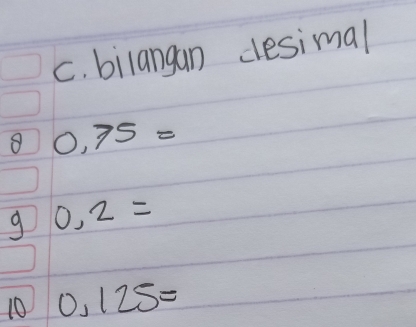 c. bilangan desimal
8 0,75 =
9 0,2 =
10 0,125=